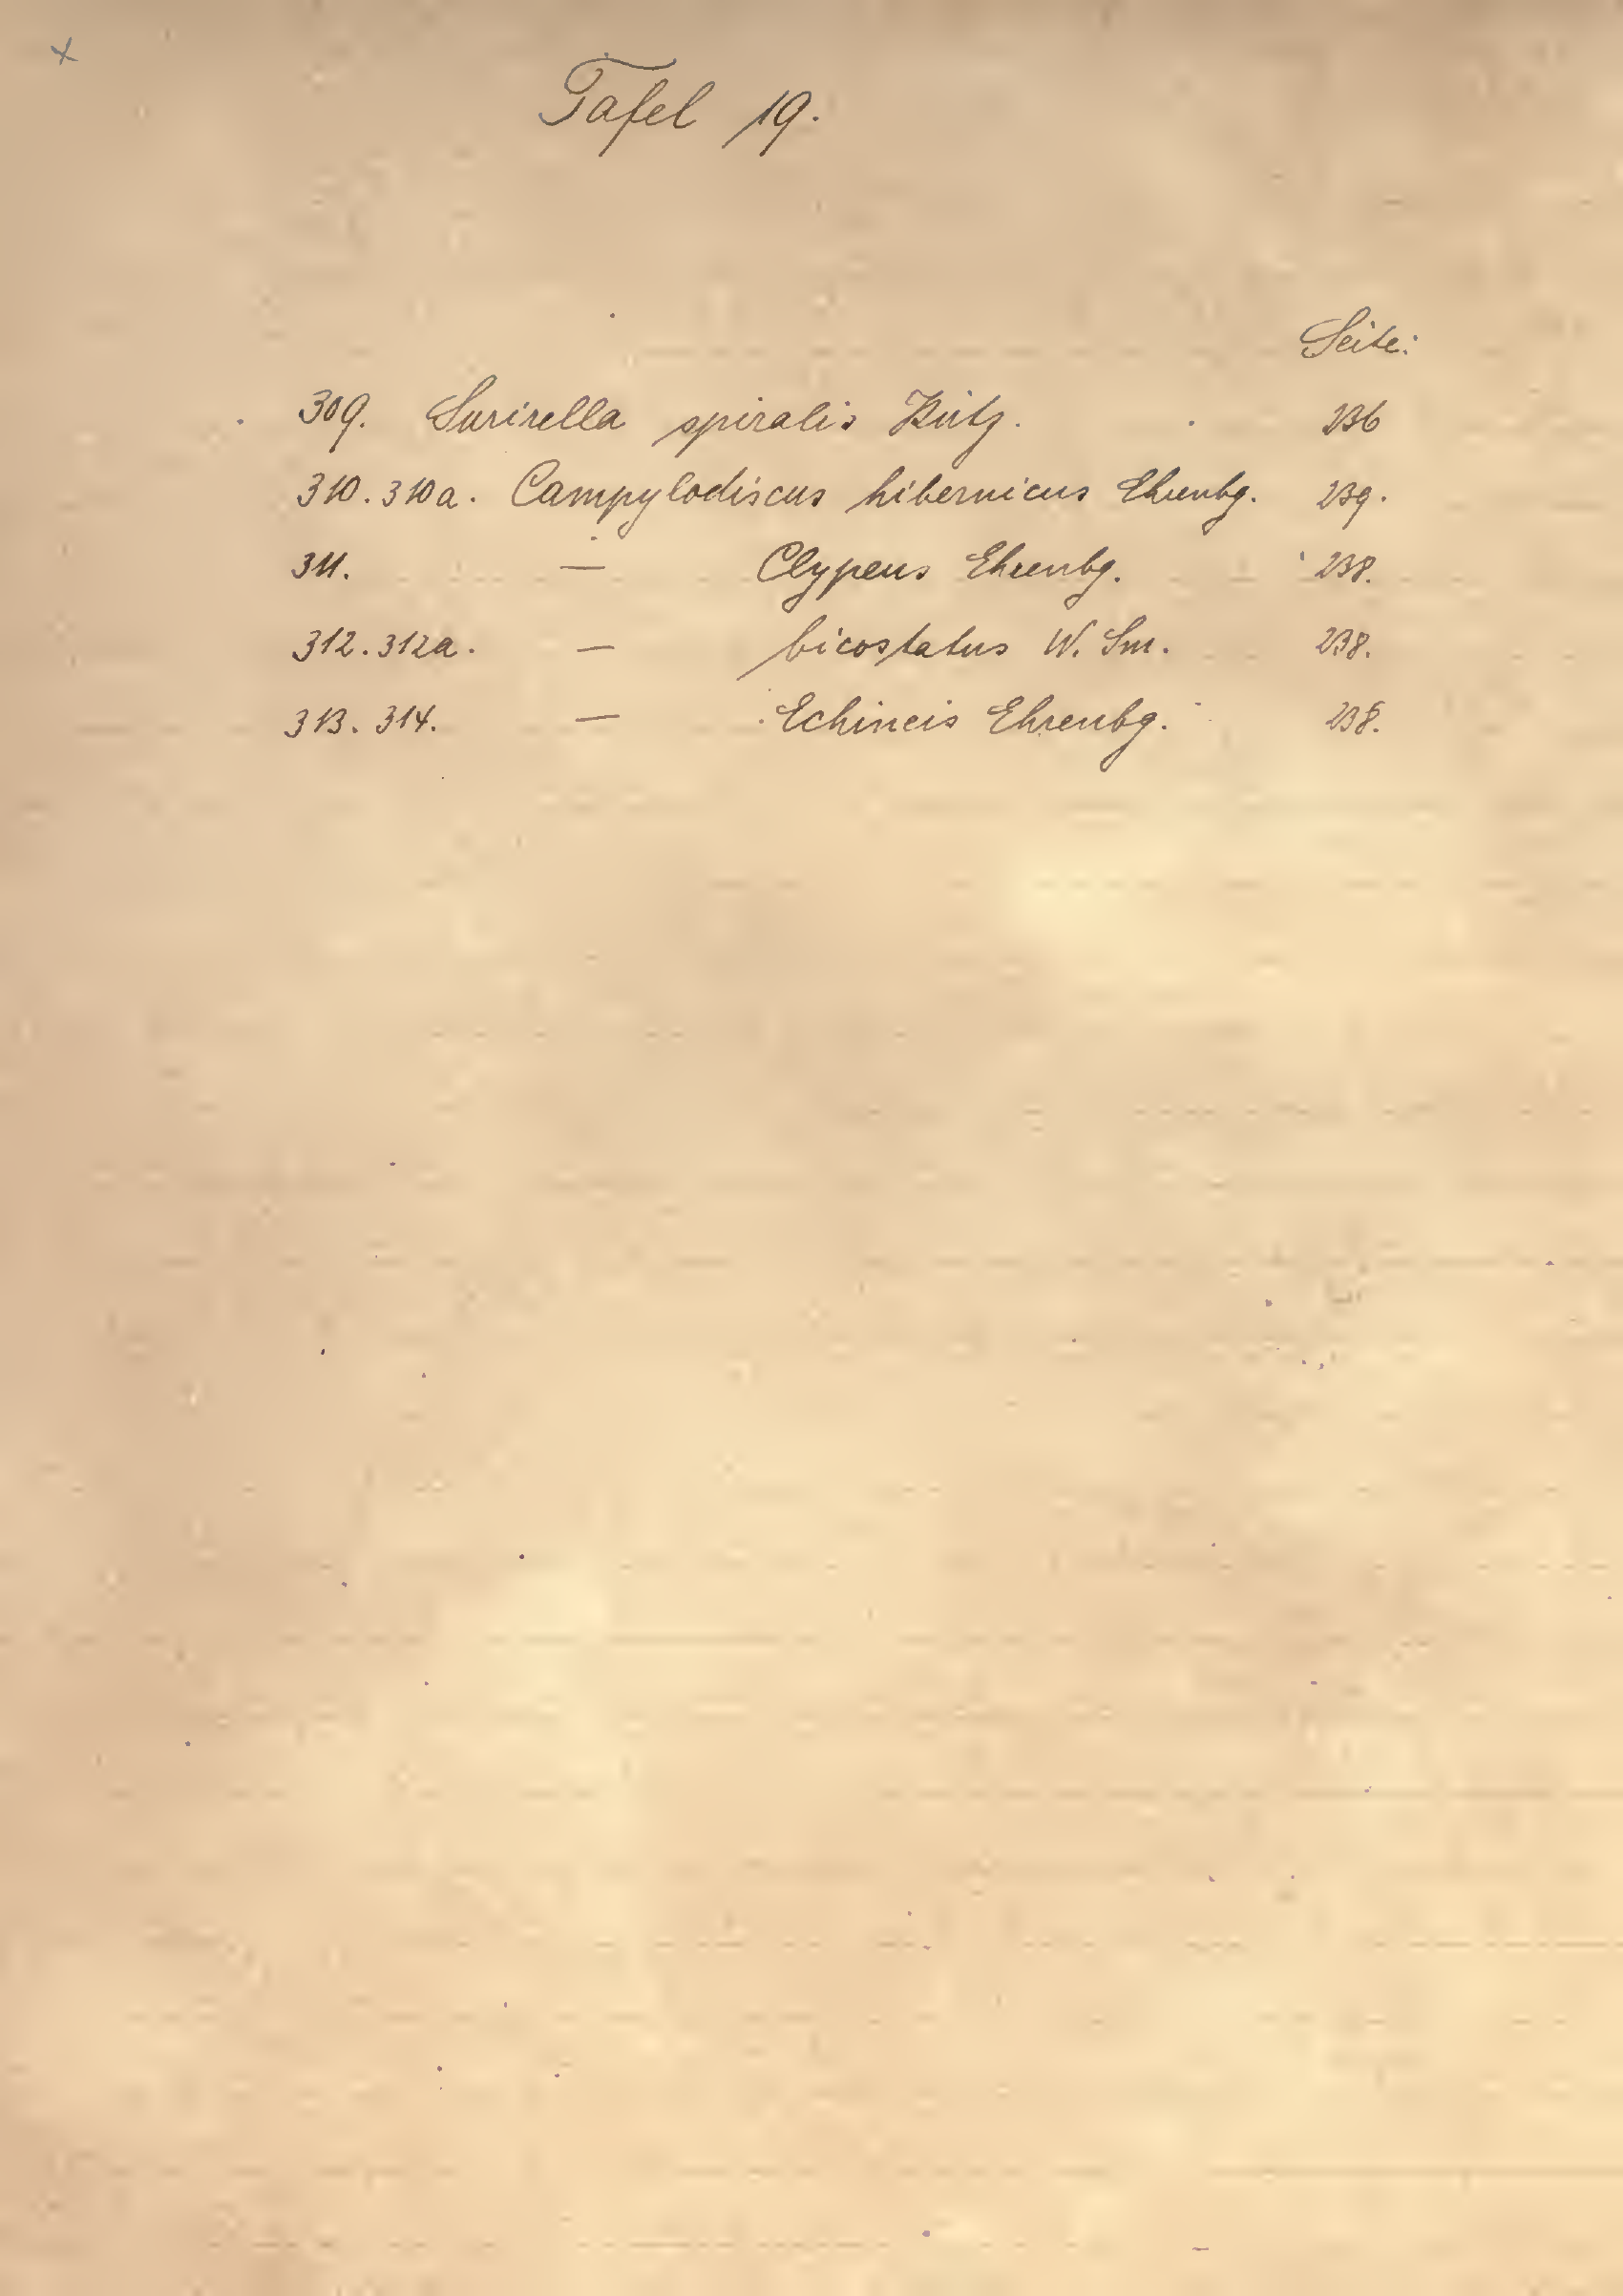 Tafel 19.
Seite:
309. Surirella spiralis Kütz. 236
310. 310a. Campylodiscus hibernicus Ehrenbg. 239.
311. — Clypeus Ehrenbg. 238.
312. 312a. — bicostatus W. Sm. 238.
313. 314. — Echineis Ehrenbg. 238.